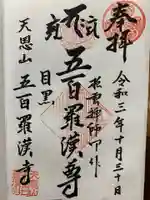 奉拝
令和三年十月三十日
松雲禅師一作
五百羅漢尊
目黒
天恩山
五百羅漢寺